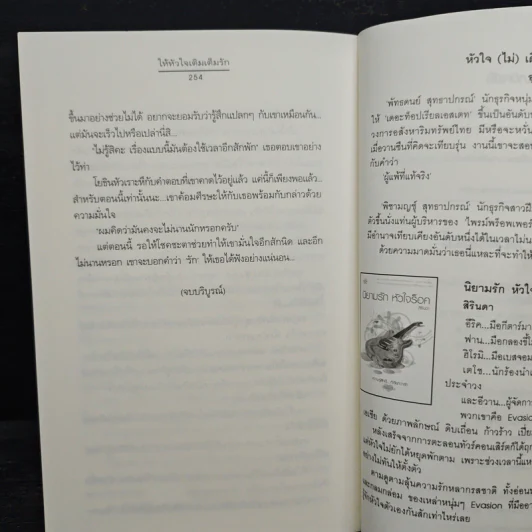 ให้หัวใจเติมเต็มรัก
264
ขึ้นมาอย่างช่วยไม่ได้ อยากจะยอมรับว่ารู้สึกแปลกๆ กับเขาเหมือนกัน...
แต่มันจะเร็วไปหรือเปล่านี่สิ...
'ไม่รู้สิคะ เรื่องแบบนี้มันต้องใช้เวลาอีกสักพัก' เธอตอบเขาอย่าง
ไว้ท่า
โยธินหัวเราะหึกับคำตอบที่เขาคาดไว้อยู่แล้ว แต่นี้ก็เพียงพอแล้ว...
สำหรับตอนนี้เท่านั้นนะ...เขาค้อมศีรษะให้กับเธอพร้อมกับกล่าวด้วย
ความมั่นใจ
'ผมคิดว่ามันคงจะไม่นานนักหรอกครับ'
แต่ตอนนี้ รอให้โชคชะตาช่วยทำให้เขามั่นใจอีกสักนิด และอีก
ไม่นานหรอก เขาจะบอกคำว่า รัก ให้เธอได้ฟังอย่างแน่นอน...
(จบบริบูรณ์)
หัวใจ (ไม่)
'พัทธดนย์ สุทธาปกรณ์' นักธุรกิจหนุ่ม
ให้ 'เดอะท็อปเรียลเอสเตท' ขึ้นเป็นอันดับ
วงการอสังหาริมทรัพย์ไทย มีหรือจะหวั่น
เมื่อวานซืนที่คิดจะเทียบรุ่น งานนี้เขาจะสอน
กับคำว่า
'ผู้แพ้ที่แท้จริง'
'พิชามญชุ์ สุทธาปกรณ์' นักธุรกิจสาว
ตัวขึ้นนั่งแท่นผู้บริหารของ 'ไพรม์พร็อพเพอร์
มีอำนาจเทียบเคียงอันดับหนึ่งได้ในเวลาไม่นาน
ด้วยความมาดมั่นว่าเธอนี่แหละที่จะทำให้
นิยามรัก หัวใจร็อค
นิยามรัก หัวใจ
สิรินดา
อีริค...มือกีตาร์
ฟาน...มือกลองขี้
ฮิโรมิ...มือเบสจอม
เตโช...นักร้องนำ
ประจำวง
และอีวาน...ผู้จัดการ
พวกเขาคือ Evasion
เอเชีย ด้วยภาพลักษณ์ ดิบเถื่อน ก้าวร้าว
หลังเสร็จจากการตะลอนทัวร์คอนเสิร์ตก็ได้
แต่หัวใจไม่ยักได้หยุดพักตาม เพราะช่วงเวลานี้
อย่างไม่ทันให้ตั้งตัว
ตามดูตามลุ้นความรักหลากรสชาติ ทั้งอ่อน
และกลมกล่อม ของเหล่าหนุ่มๆ Evasion ที่มี
รู้หัวใจตัวเองกันสักเท่าไหร่เลย